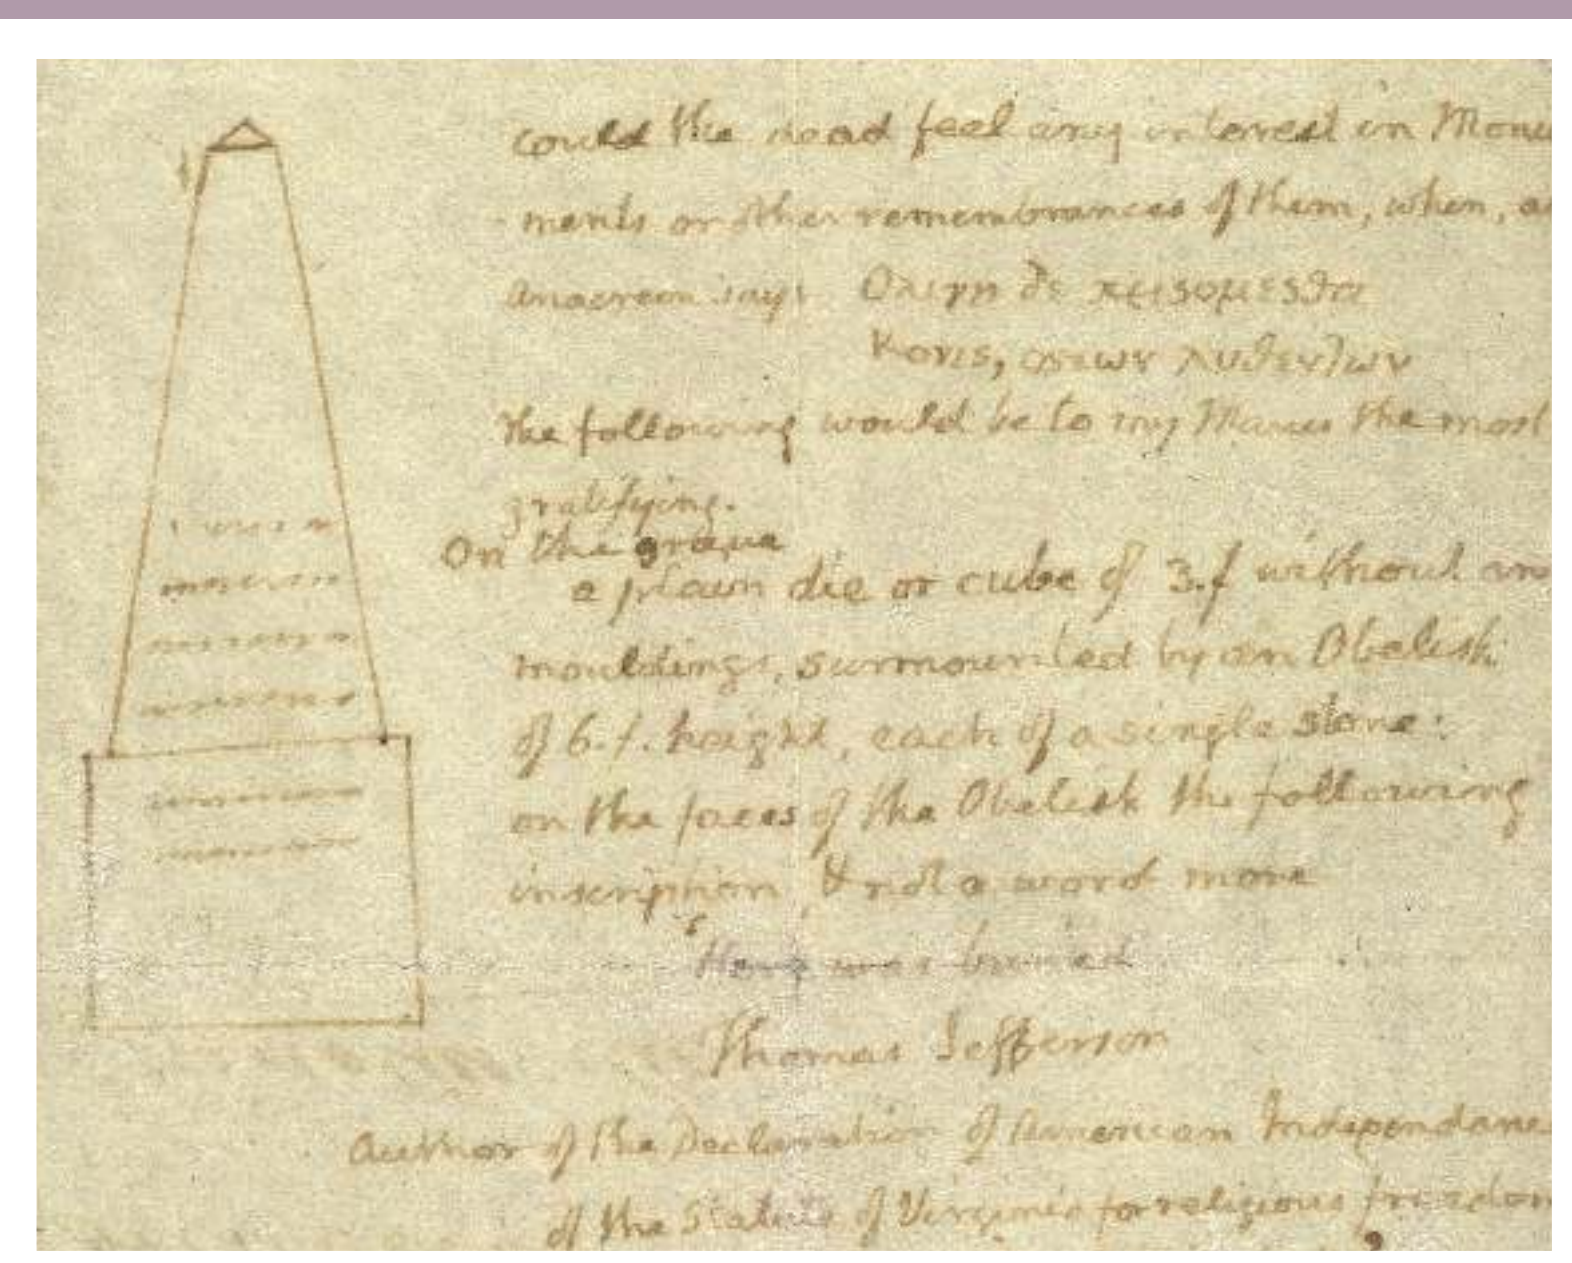 could the dead feel any interest in Monu
- ments or other remembrances of them, when, as
Anacreon says Ολιγη δε κεισομεσθα
Κονις, οσεων λυθεντων
the following would be to my Manes the most
gratifying.
On the grave
a plain die or cube of 3.f without any
mouldings, surmounted by an Obelisk
of 6.f. height, each of a single stone:
on the faces of the Obelisk the following
inscription, & not a word more
Here was buried
Thomas Jefferson
Author of the Declaration of American Independance
of the Statute of Virginia for religious freedom